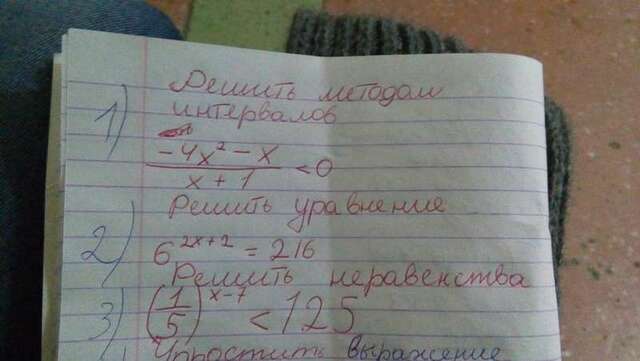 1) Решить методом
интервалов
(-4x² - x)/(x + 1) < 0
Решить уравнение
2) 6^(2x+2) = 216
Решить неравенства
3) (1/5)^(x-7) < 125
Упростить выражение